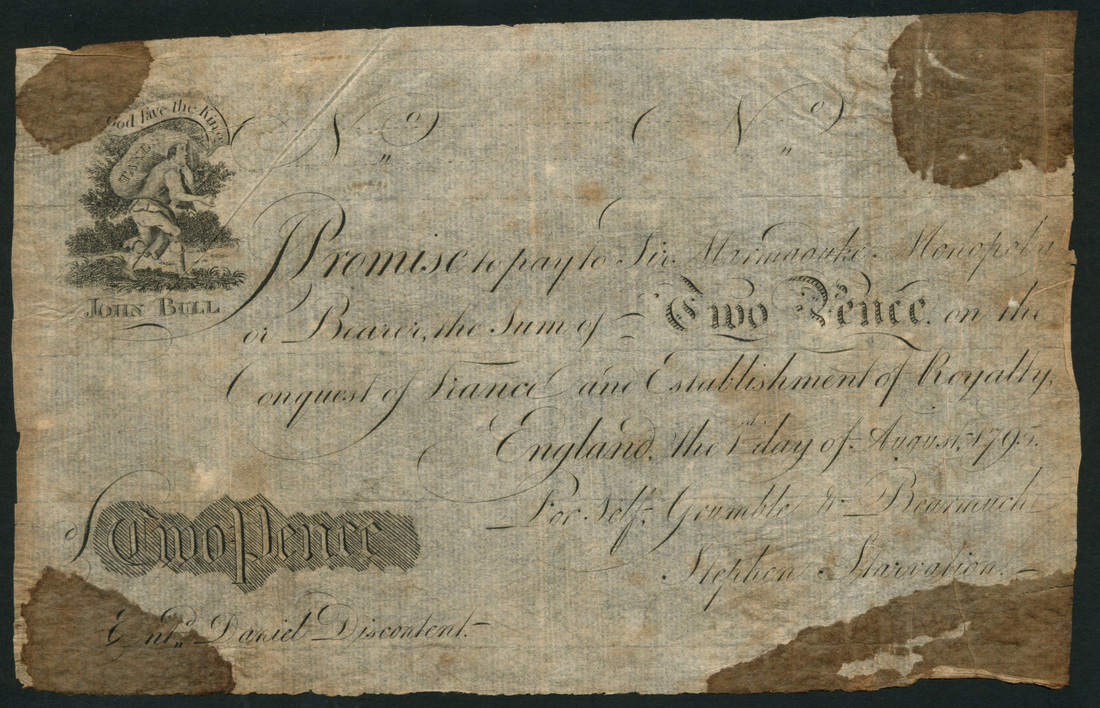 God save the King
TAXES
JOHN BULL
No. No.
I Promise to pay to Sir Marmaduke Monopoly
or Bearer, the Sum of Two Pence on the
Conquest of France and Establishment of Royalty,
England, the 1st day of August, 1795.
For Self, Grumble & Bearmuch
£ Two Pence
Stephen Starvation.
Entd. Daniel Discontent.